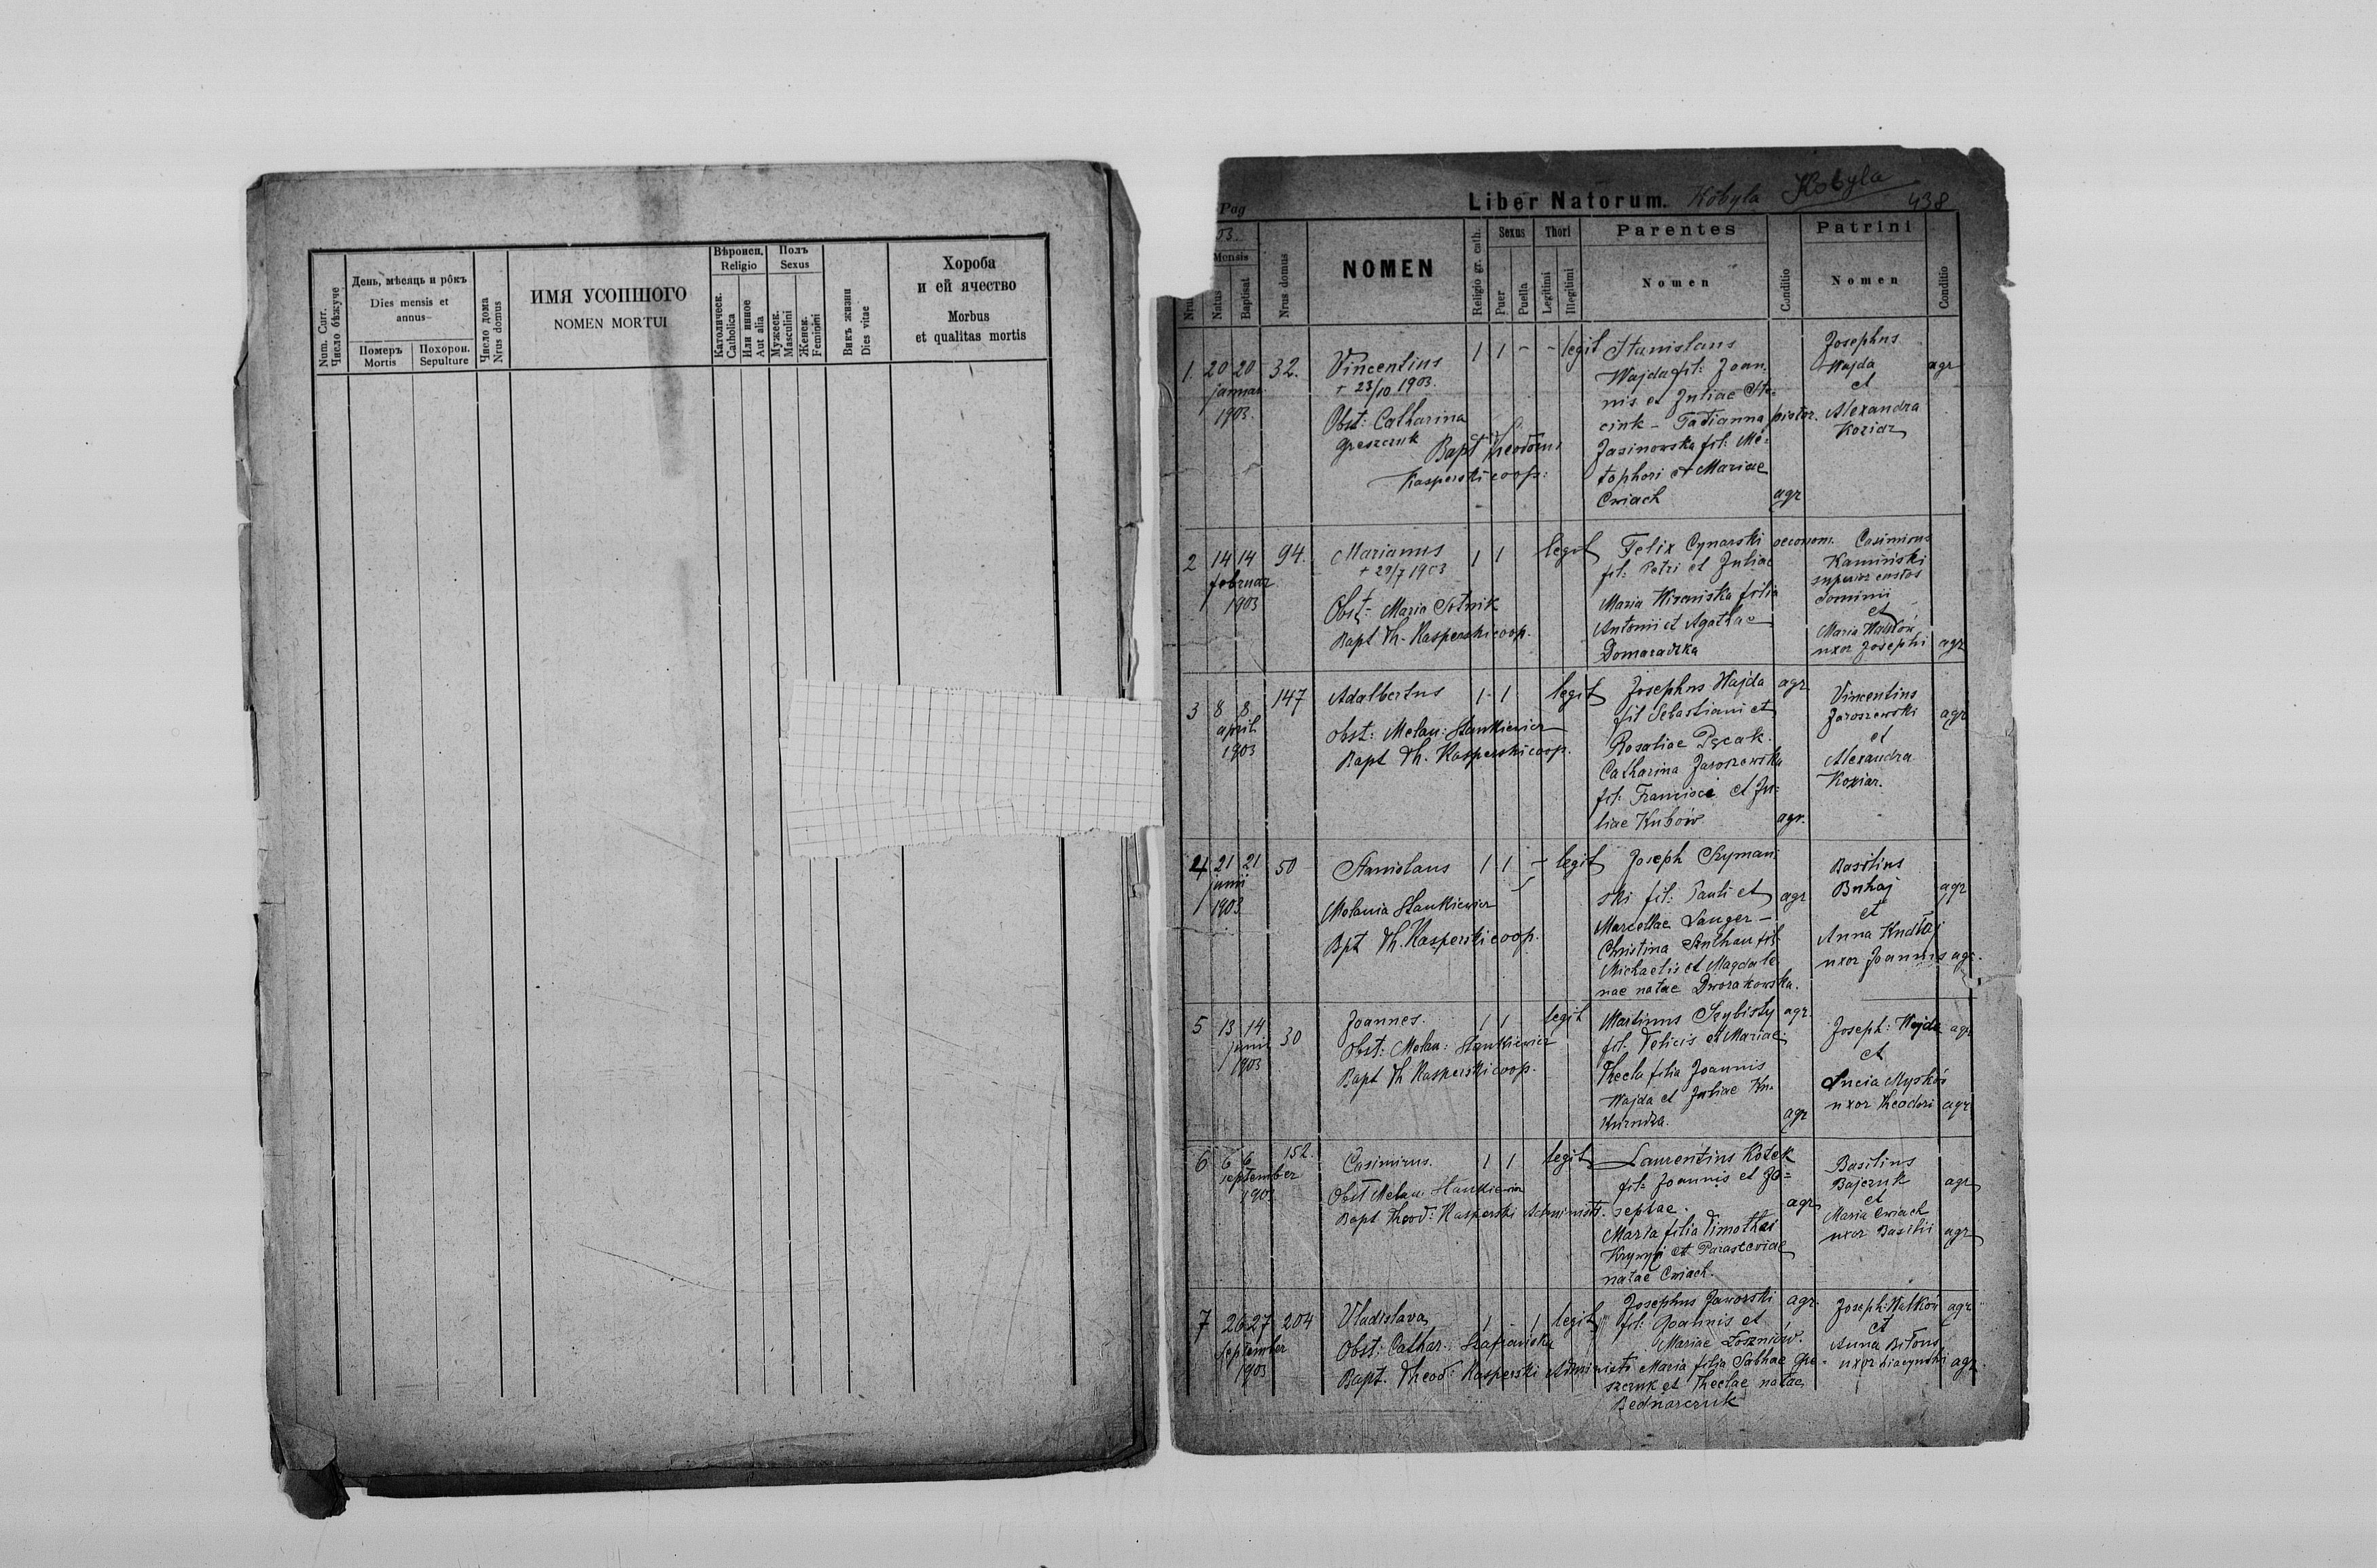 Num. Curr.
Число бѣжуче
День, мѣсяць и рôкъ
Dies mensis et
annus
Померъ
Mortis
Похорон.
Sepulture
Число дома
Nrus domus
ИМЯ УСОПШОГО
NOMEN MORTUI
Вѣроисп.
Religio
Католическ.
Catholica
Или инное
Aut alia
Полъ
Sexus
Мужеск.
Masculini
Женеск.
Feminini
Викъ жизни
Dies vitae
Хороба
и еѣ ячество
Morbus
et qualitas mortis
Pag
Liber Natorum. Kobyla Kobyla
438
03.
Mensis
Natus
Baptisat
Nrus domus
NOMEN
Religio gr. cath.
Sexus
Puer
Puella
Thori
Legitimi
Illegitimi
Parentes
Nomen
Conditio
Patrini
Nomen
Conditio
1. 20 20 32.
januar
1903.
Vincentius
+ 23/10 1903.
Obst: Catharina
Greszczuk
Bapt Theodorus
Kasperski coop:
1 1 - - legit
Stanislaus
Wajda fil: Joan
nis et Juliae
Tatianna
Jasinowska fil: Me=
tophori et Mariae
Cwiach agr
Josephus
Wajda agr
et
Alexandra
Koziar
2 14 14 94.
februar
1903
Marianus
+ 29/7 1903
Obst: Maria Sotnik
Bapt Th. Kasperski coop.
1 1 legit
Felix Cynarski oeconom.
fil: Petri et Juliae
Maria filia
Antonii et Agathae
Domaradzka
Casimirus
Kamiński
superior custos
dominii
et
Maria
uxor Josephi agr
3 8 8 147
april
1903
Adalbertus
Obst: Melan: Stankiewicz
Bapt Th. Kasperski coop.
1 1 legit
Josephus Wajda agr
fil Sebastiani et
Rosaliae Pęcak.
Catharina Jaroszewska
fil: Francisci et Ju=
liae Kubów agr.
Vincentius
Jaroszewski agr
et
Alexandra
Koziar.
4 21 21 50
junii
1903
Stanislaus
Melania Stankiewicz
Bpt Th. Kasperski coop.
1 1 - legit
Joseph Szyman
ski fil: Pauli et agr
Marcellae Langer -
Christina fil
Michaelis et Magdale
nae natae Dworakowska.
Basilius
Buhaj agr
et
Anna Kudłaj
uxor Joannis agr.
5 13 14 30
junii
1903
Joannes.
Obst: Melan: Stankiewicz
Bapt Th Kasperski coop.
1 1 legit
Martinus Szybisty agr.
fil: Felicis et Mariae
Thecla filia Joannis
Wajda et Juliae
agr
Joseph: Wajda agr
et
Lucia Myskòs
uxor Theodori agr
6 6 6 152.
september
1903
Casimirus.
Obst Melan: Stankiewicz
Bapt Theod: Kasperski Administr.
1 1 legit
Laurentius Kotek
fil: Joannis et Jo=
sephae. agr
Maria filia Timothei
et Parasceviae
natae Cwiach.
Basilius
Bajczuk agr
et
Maria Cwiach
uxor Basilii agr
7 26 27 204
September
1903
Vladislava
Obst: Cathar:
Bapt. Theod: Kasperski Administr
1 - 1 legit
Josephus Jaworski agr.
fil: Joannis et
Mariae
Maria filia Sabbae Gre-
szczuk et Theclae natae
Bednarczuk
Joseph: Walków agr
et
Anna Biłous
uxor Hiacynthi agr.